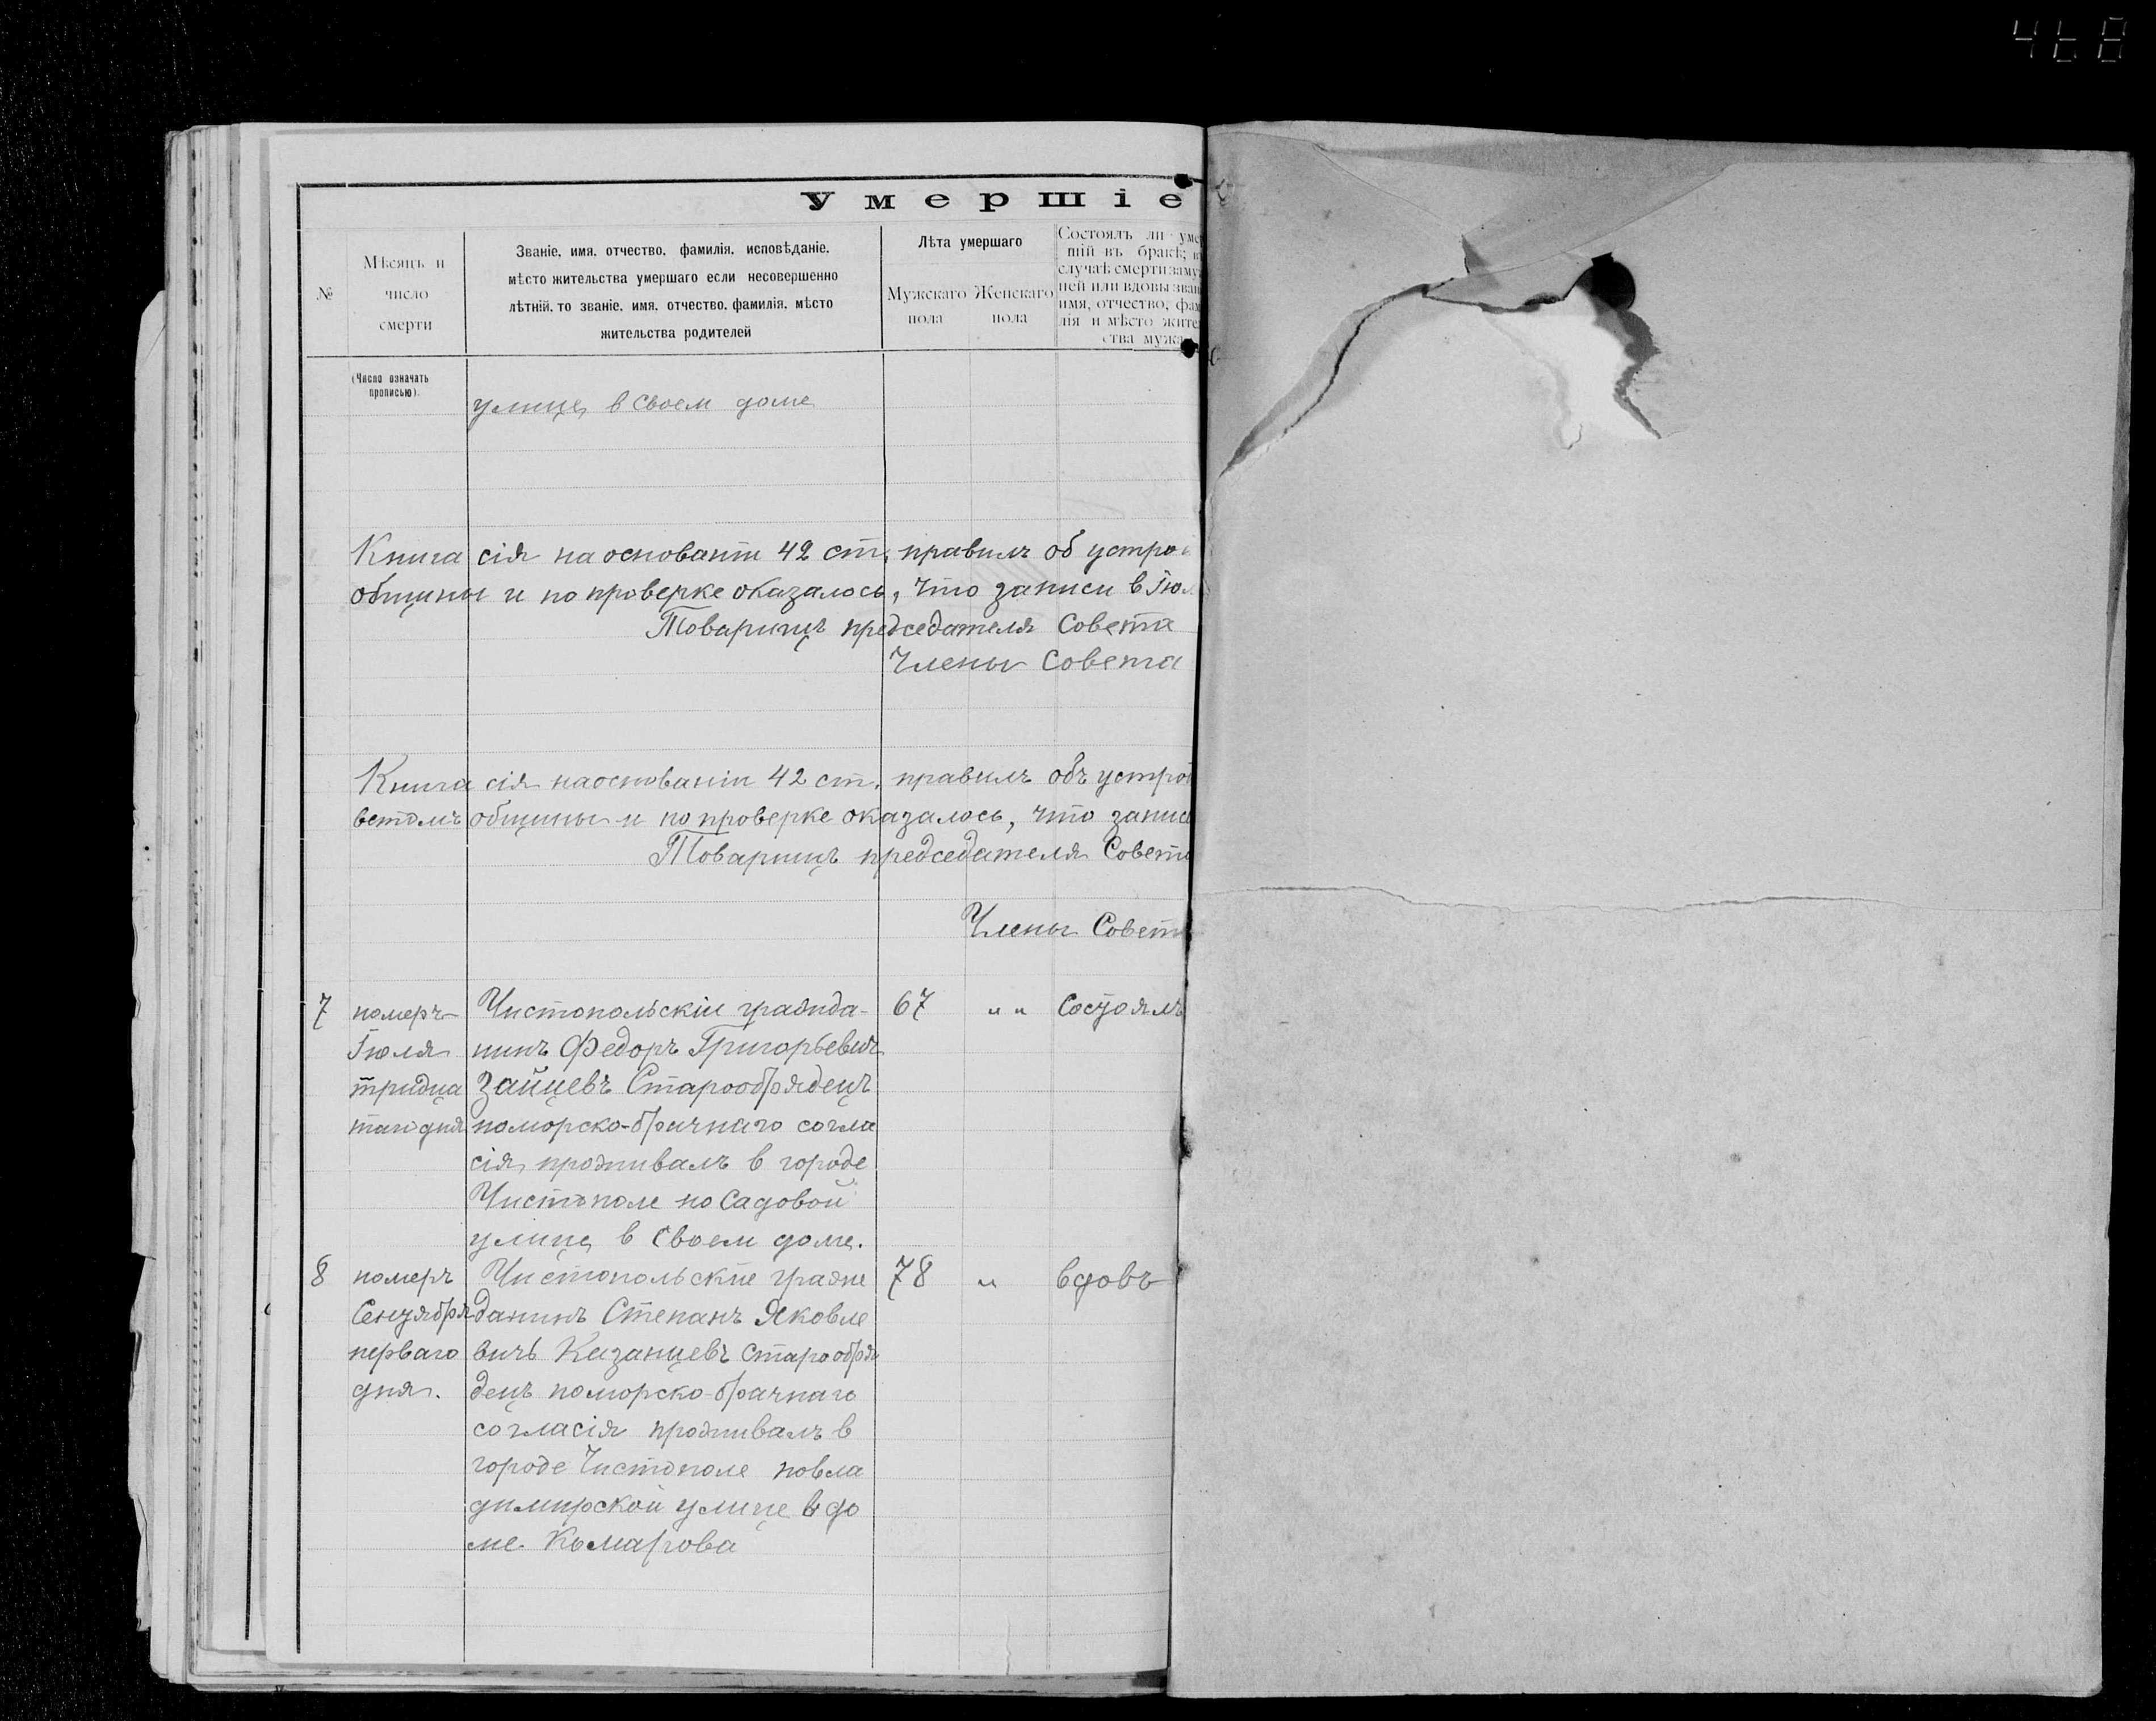 Умершіе
№
Мѣсяцъ и
число
смерти
(Число означать
прописью).
Званіе, имя, отчество, фамилія, исповѣданіе,
мѣсто жительства умершаго если несовершенно
лѣтній, то званіе, имя, отчество, фамилія, мѣсто
жительства родителей
Лѣта умершаго
Мужскаго
пола
Женскаго
пола
Состоялъ ли уме
шій въ бракѣ; в
случаѣ смерти заму
ней или вдовы зван
имя, отчество, фам
лія и мѣсто жите
ства мужа
улице, в своем доме
Книга сія на основаніи 42 ст. правилъ об устро
общины и по проверке оказалось, что записи в Іюл
Товарищъ председателя Совета
Члены Совета
Книга сія на основаніи 42 ст. правилъ объ устрой
ветомъ общины и по проверке оказалось, что записи
Товарищъ председателя Совета
Члены Совета
7 померъ Чистопольскіи гражда- 67 " " Состоялъ
Іюля нинъ Федоръ Григорьевич
тридца Зайцевъ Старообрядецъ
таго дня поморско-брачнаго согла
сія, проживалъ в городе
Чистополе по Садовой
улице, в своем доме.
8 померъ Чистопольскіе граж 78 " вдовъ
Сентября данинъ Степанъ Яковле
перваго вичь Казанцевъ Старообря
дня. децъ поморско-брачнаго
согласія проживалъ в
городе Чистополе по вла
димирской улице в до
ме Комарова
468